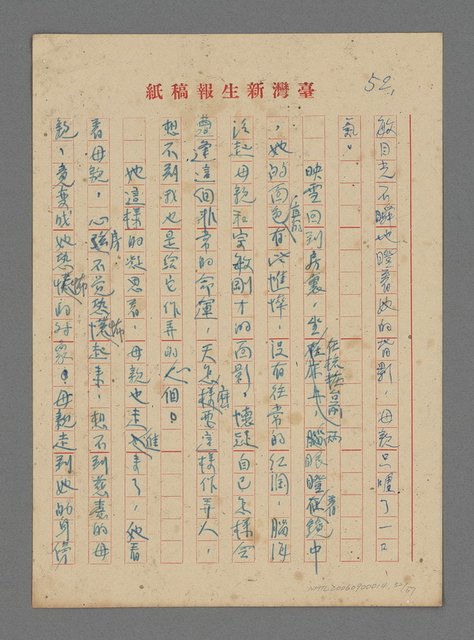 臺灣新生報稿紙
52,
敏目光不瞬地瞪着她的背影，母親只嘆了一口
氣。
映雪回到房裏，坐在梳粧台前，兩眼瞪着鏡中
，她的面色有些憔悴，沒有往常的紅潤，腦海
泛起母親和宗敏剛才的面影，懷疑自己怎樣會
遭逢這個非常的命運，天怎麽要這樣作弄人，
想不到我也是給它作弄的一個。
她這樣的凝思着，母親也走進來了，她看
着母親，心房不覺恐怖起來，想不到慈愛的母
親，竟變成她恐怖的對象。母親走到她的身傍
NMTL20060900014 52/57